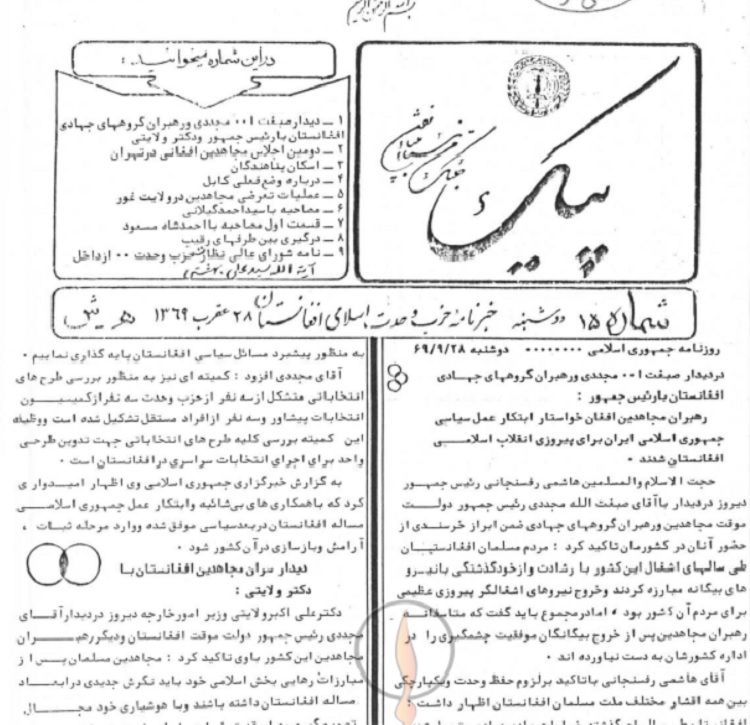 بسم الله الرحمن الرحیم
پیک
در این شماره میخوانید :
۱ ــ دیدار صبغت ا۰۰ مجددی و رهبران گروههای جهادی
افغانستان با رئیس جمهور و دکتر ولایتی
۲ ــ دومین اجلاس مجاهدین افغانی در تهران
۳ ــ اسکان پناهندگان
۴ ــ درباره وضع فعلی کابل
۵ ــ عملیات تعرضی مجاهدین در ولایت غور
۶ ــ مصاحبه با سید احمد گیلانی
۷ ــ قسمت اول مصاحبه با احمد شاه مسعود
۸ ــ درگیری بین طرفهای رقیب
۹ ــ نامه شورای عالی نظار حزب وحدت ۰۰ از داخل
آیة الله سید علی بهشتی
شماره ۱۵ دوشنبه خبرنامه حزب وحدت اسلامی افغانستان ۲۸ عقرب ۱۳۶۹
روزنامه جمهوری اسلامی ۰۰۰۰۰۰۰۰ دوشنبه ۶۹/۹/۲۸
در دیدار صبغت ا۰۰ مجددی و رهبران گروههای جهادی
افغانستان با رئیس جمهور :
رهبران مجاهدین افغان خواستار ابتکار عمل سیاسی
جمهوری اسلامی ایران برای پیروزی انقلاب اسلامی
افغانستان شدند ۰
حجت الاسلام والمسلمین هاشمی رفسنجانی رئیس جمهور
دیروز در دیدار با آقای صبغت الله مجددی رئیس جمهور دولت
موقت مجاهدین و رهبران گروههای جهادی ضمن ابراز خرسندی از
حضور آنان در کشورمان تاکید کرد : مردم مسلمان افغانستان
طی سالهای اشغال این کشور با رشادت و از خودگذشتگی با نیرو
های بیگانه مبارزه کردند و خروج نیروهای اشغالگر پیروزی عظیمی
برای مردم آن کشور بود ، اما در مجموع باید گفت که متاسفانه
رهبران مجاهدین پس از خروج بیگانگان موفقیت چشمگیری را در
اداره کشورشان به دست نیاورده اند ۰
آقای هاشمی رفسنجانی با تاکید بر لزوم حفظ وحدت و یکپارچگی
بین همه اقشار مختلف ملت مسلمان افغانستان اظهار داشت :
به منظور پیشبرد مسائل سیاسی افغانستان پایه گذاری نماییم ۰
آقای مجددی افزود : کمیته ای نیز به منظور بررسی طرح های
انتخاباتی متشکل از سه نفر از حزب وحدت سه نفر از کمیسیون
انتخابات پیشاور و سه نفر از افراد مستقل تشکیل شده است و وظیفه
این کمیته بررسی کلیه طرح های انتخاباتی جهت تدوین طرحی
واحد برای اجرای انتخابات سراسری در افغانستان است ۰
به گزارش خبرگزاری جمهوری اسلامی وی اظهار امیدواری
کرد که با همکاری های بی شائبه و ابتکار عمل جمهوری اسلامی
مساله افغانستان در بعد سیاسی موفق شده و وارد مرحله ثبات ،
آرامش و بازسازی در آن کشور شود ۰
دیدار سران مجاهدین افغانستان با
دکتر ولایتی :
دکتر علی اکبر ولایتی وزیر امور خارجه دیروز در دیدار آقای
مجددی رئیس جمهور دولت موقت افغانستان و دیگر رهبران
مجاهدین این کشور با وی تاکید کرد : مجاهدین مسلمان پس از
مبارزات رهایی بخش اسلامی خود باید نگرش جدیدی در ابعاد
مساله افغانستان داشته باشند و با هوشیاری خود مجال